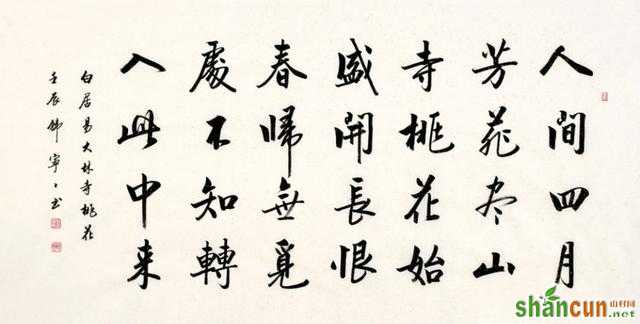 人間四月
芳菲尽山
寺桃花始
盛開長恨
春歸無覓
處不知轉
入此中来
白居易大林寺桃花
壬辰寧〻书
shancun
山村网
.net